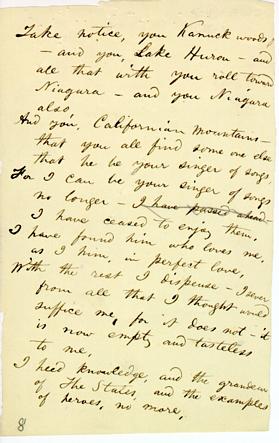 Take notice, you Kanuck woods
— and you, Lake Huron — and
all that with you roll toward
Niagara — and you Niagara
also,
And you, Californian Mountains —
that you all find some one else
that he be your singer of songs,
For I can be your singer of songs
no longer — I have passed ahead
I have ceased to enjoy them,
I have found him who loves me,
as I him, in perfect love,
With the rest I dispense — I sever
from all that I thought would
suffice me, for it does not — it
is now empty and tasteless
to me,
I heed knowledge, and the grandeur
of The States, and the examples
of heroes, no more,
8